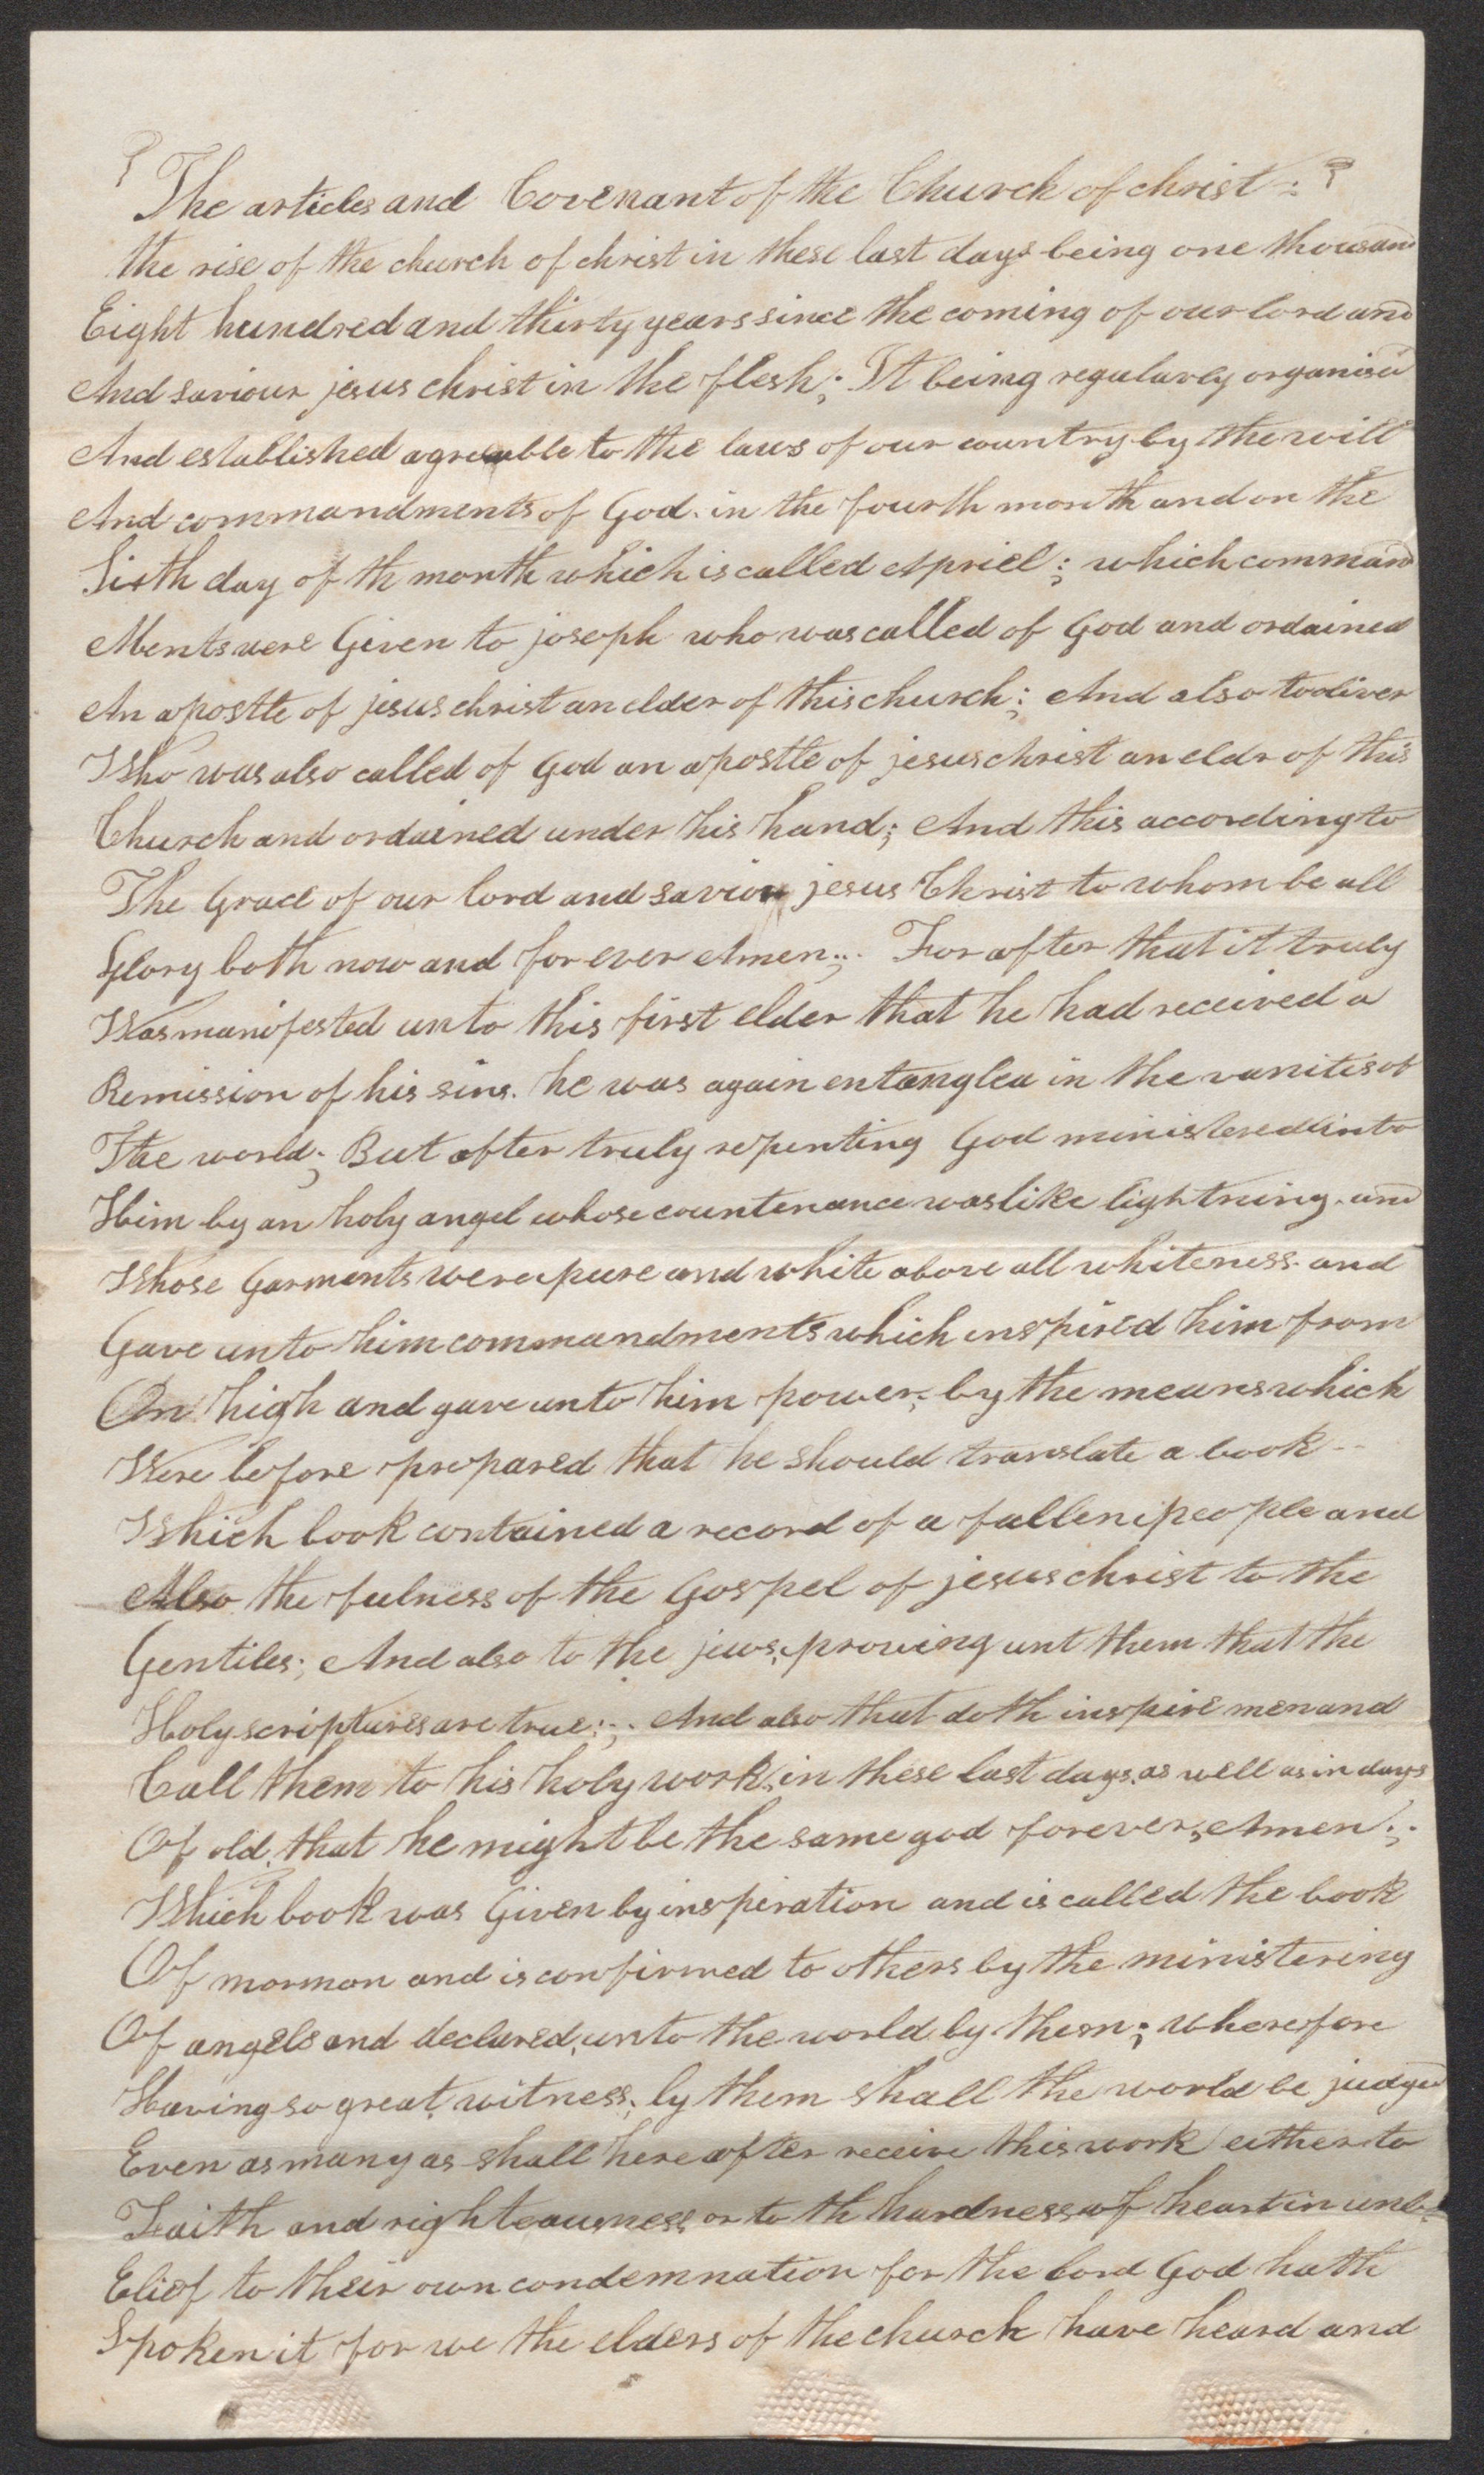 The articles and Covenant of the Church of christ :
the rise of the church of christ in these last days being one thousand
Eight hundred and thirty years since the coming of our lord and
And saviour jesus christ in the flesh; It being regularly organised
And established agreeable to the laws of our country by the will
And commandments of God. in the fourth month and on the
Sixth day of th month which is called Apriel; which command
Ments were Given to joseph who was called of God and ordained
An apostle of jesus christ an elder of this church; And also to oliver
Who was also called of God an apostle of jesus christ an eldr of this
Church and ordained under his hand; And this according to
The Grace of our lord and saviou jesus Christ to whom be all
Glory both now and for ever Amen;. For after that it truly
Was manifested unto this first elder that he had received a
Remission of his sins. he was again entangled in the vanites of
The world; But after truly repenting God ministered unto
Him by an holy angel whose countenance was like lightning. and
Whose Garments were pure and white above all whiteness. and
Gave unto him commandments which inspired him from
On high and gave unto him power, by the means which
Were before prepared that he should translate a book --
Which book contained a record of a fallen people and
Also the fulness of the Gospel of jesus christ to the
Gentiles; And also to the jews, proving unt them that the
Holy scriptures are true:;. And also that doth inspire men and
Call them to his holy work, in these last days, as well as in days
Of old, that he might be the same god forever, Amen.;.
Which book was Given by inspiration and is called the book
Of mormon and is confirmed to others by the ministering
Of angels and declared, unto the world by them; wherefore
Having so great, witness, by them shall the world be judged
Even as many as shall hereafter receive this work either to
Faith and righteousness, or to th hardness of heart in unb-
Elief to their own condemnation for the lord God hath
Spoken it for we the elders of the church have heard and